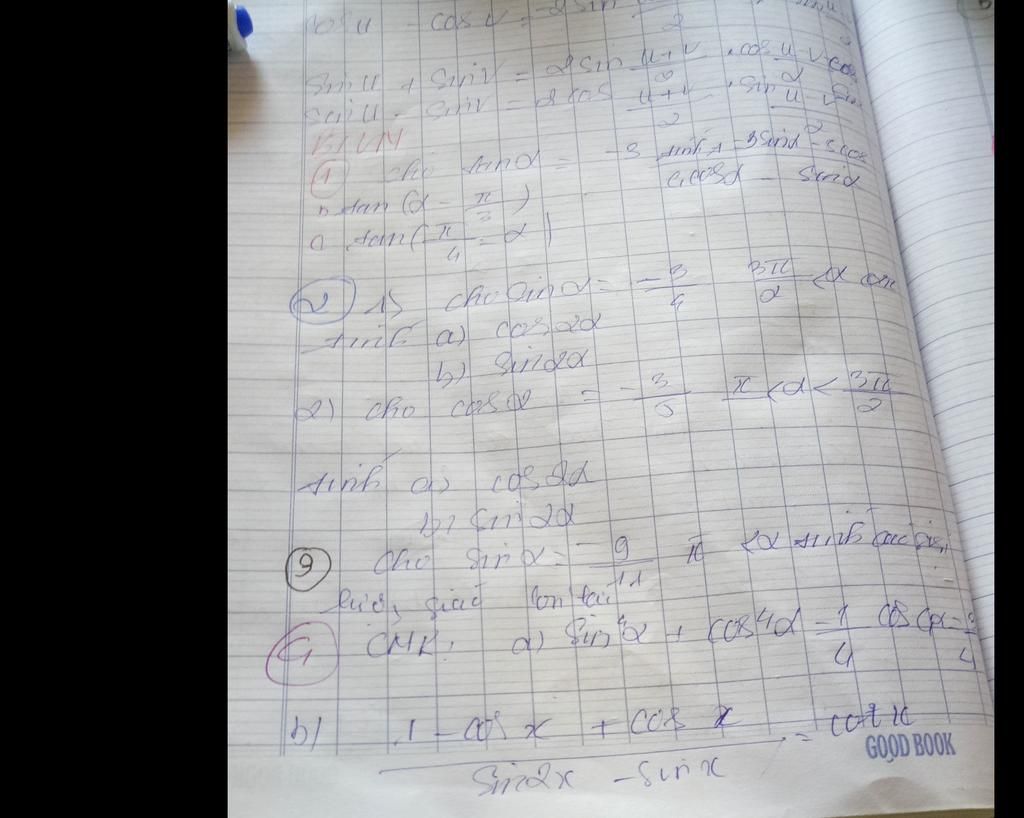 cos u - cos v = -2 sin
2
sin u + sin v = 2 sin \frac{u+v}{2} . cos \frac{u-v}{2}
sin u - sin v = 2 cos \frac{u+v}{2} . sin \frac{u-v}{2}
BTVN
① cho tan α = -3 tính \frac{3 sin α - 3 cos}{4 cos α - sin α}
b tan(α - \frac{π}{3})
c tan(\frac{π}{4} - α)
② 1) cho sin α = -\frac{3}{4} \frac{3π}{2} < α
tính a) cos 2α
b) sin 2α
2) cho cos α = -\frac{3}{5} π < α < \frac{3π}{2}
tính a) cos 2α
b) sin 2α
③ cho sin α = -\frac{9}{11} π < α tính các giá
lượng giác còn lại
④ CMR: a) sin⁴α + cos⁴α = \frac{1}{4} cos 4α = \frac{3}{4}
b) \frac{1 - cos x + cos x}{sin 2x - sin x} = cot x
GOOD BOOK